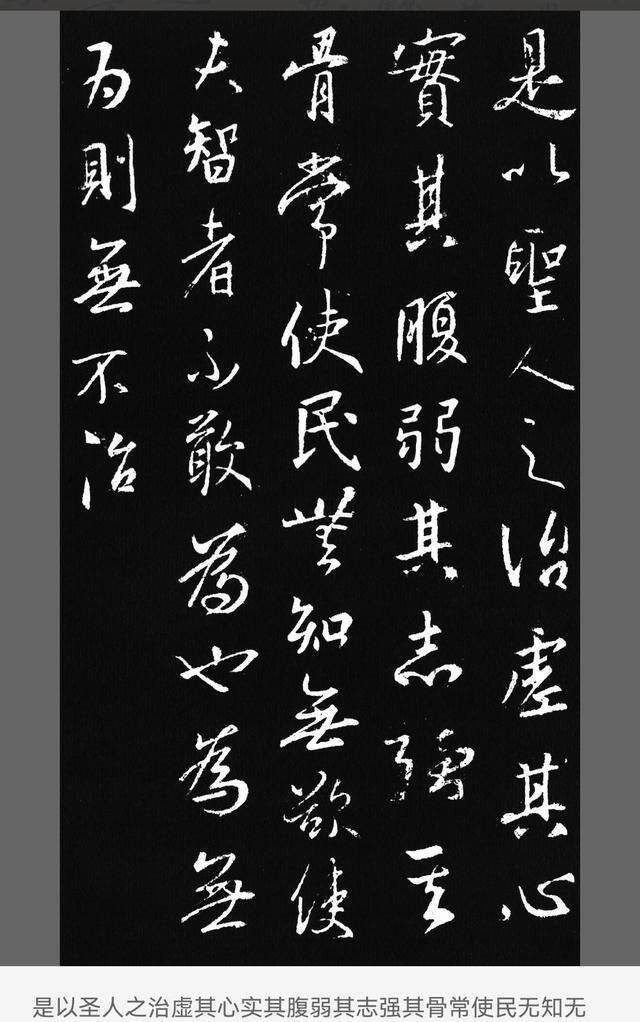 是以聖人之治虛其心
實其腹弱其志強其
骨常使民無知無欲使
夫智者不敢為也為無
為則無不治
是以圣人之治虚其心实其腹弱其志强其骨常使民无知无